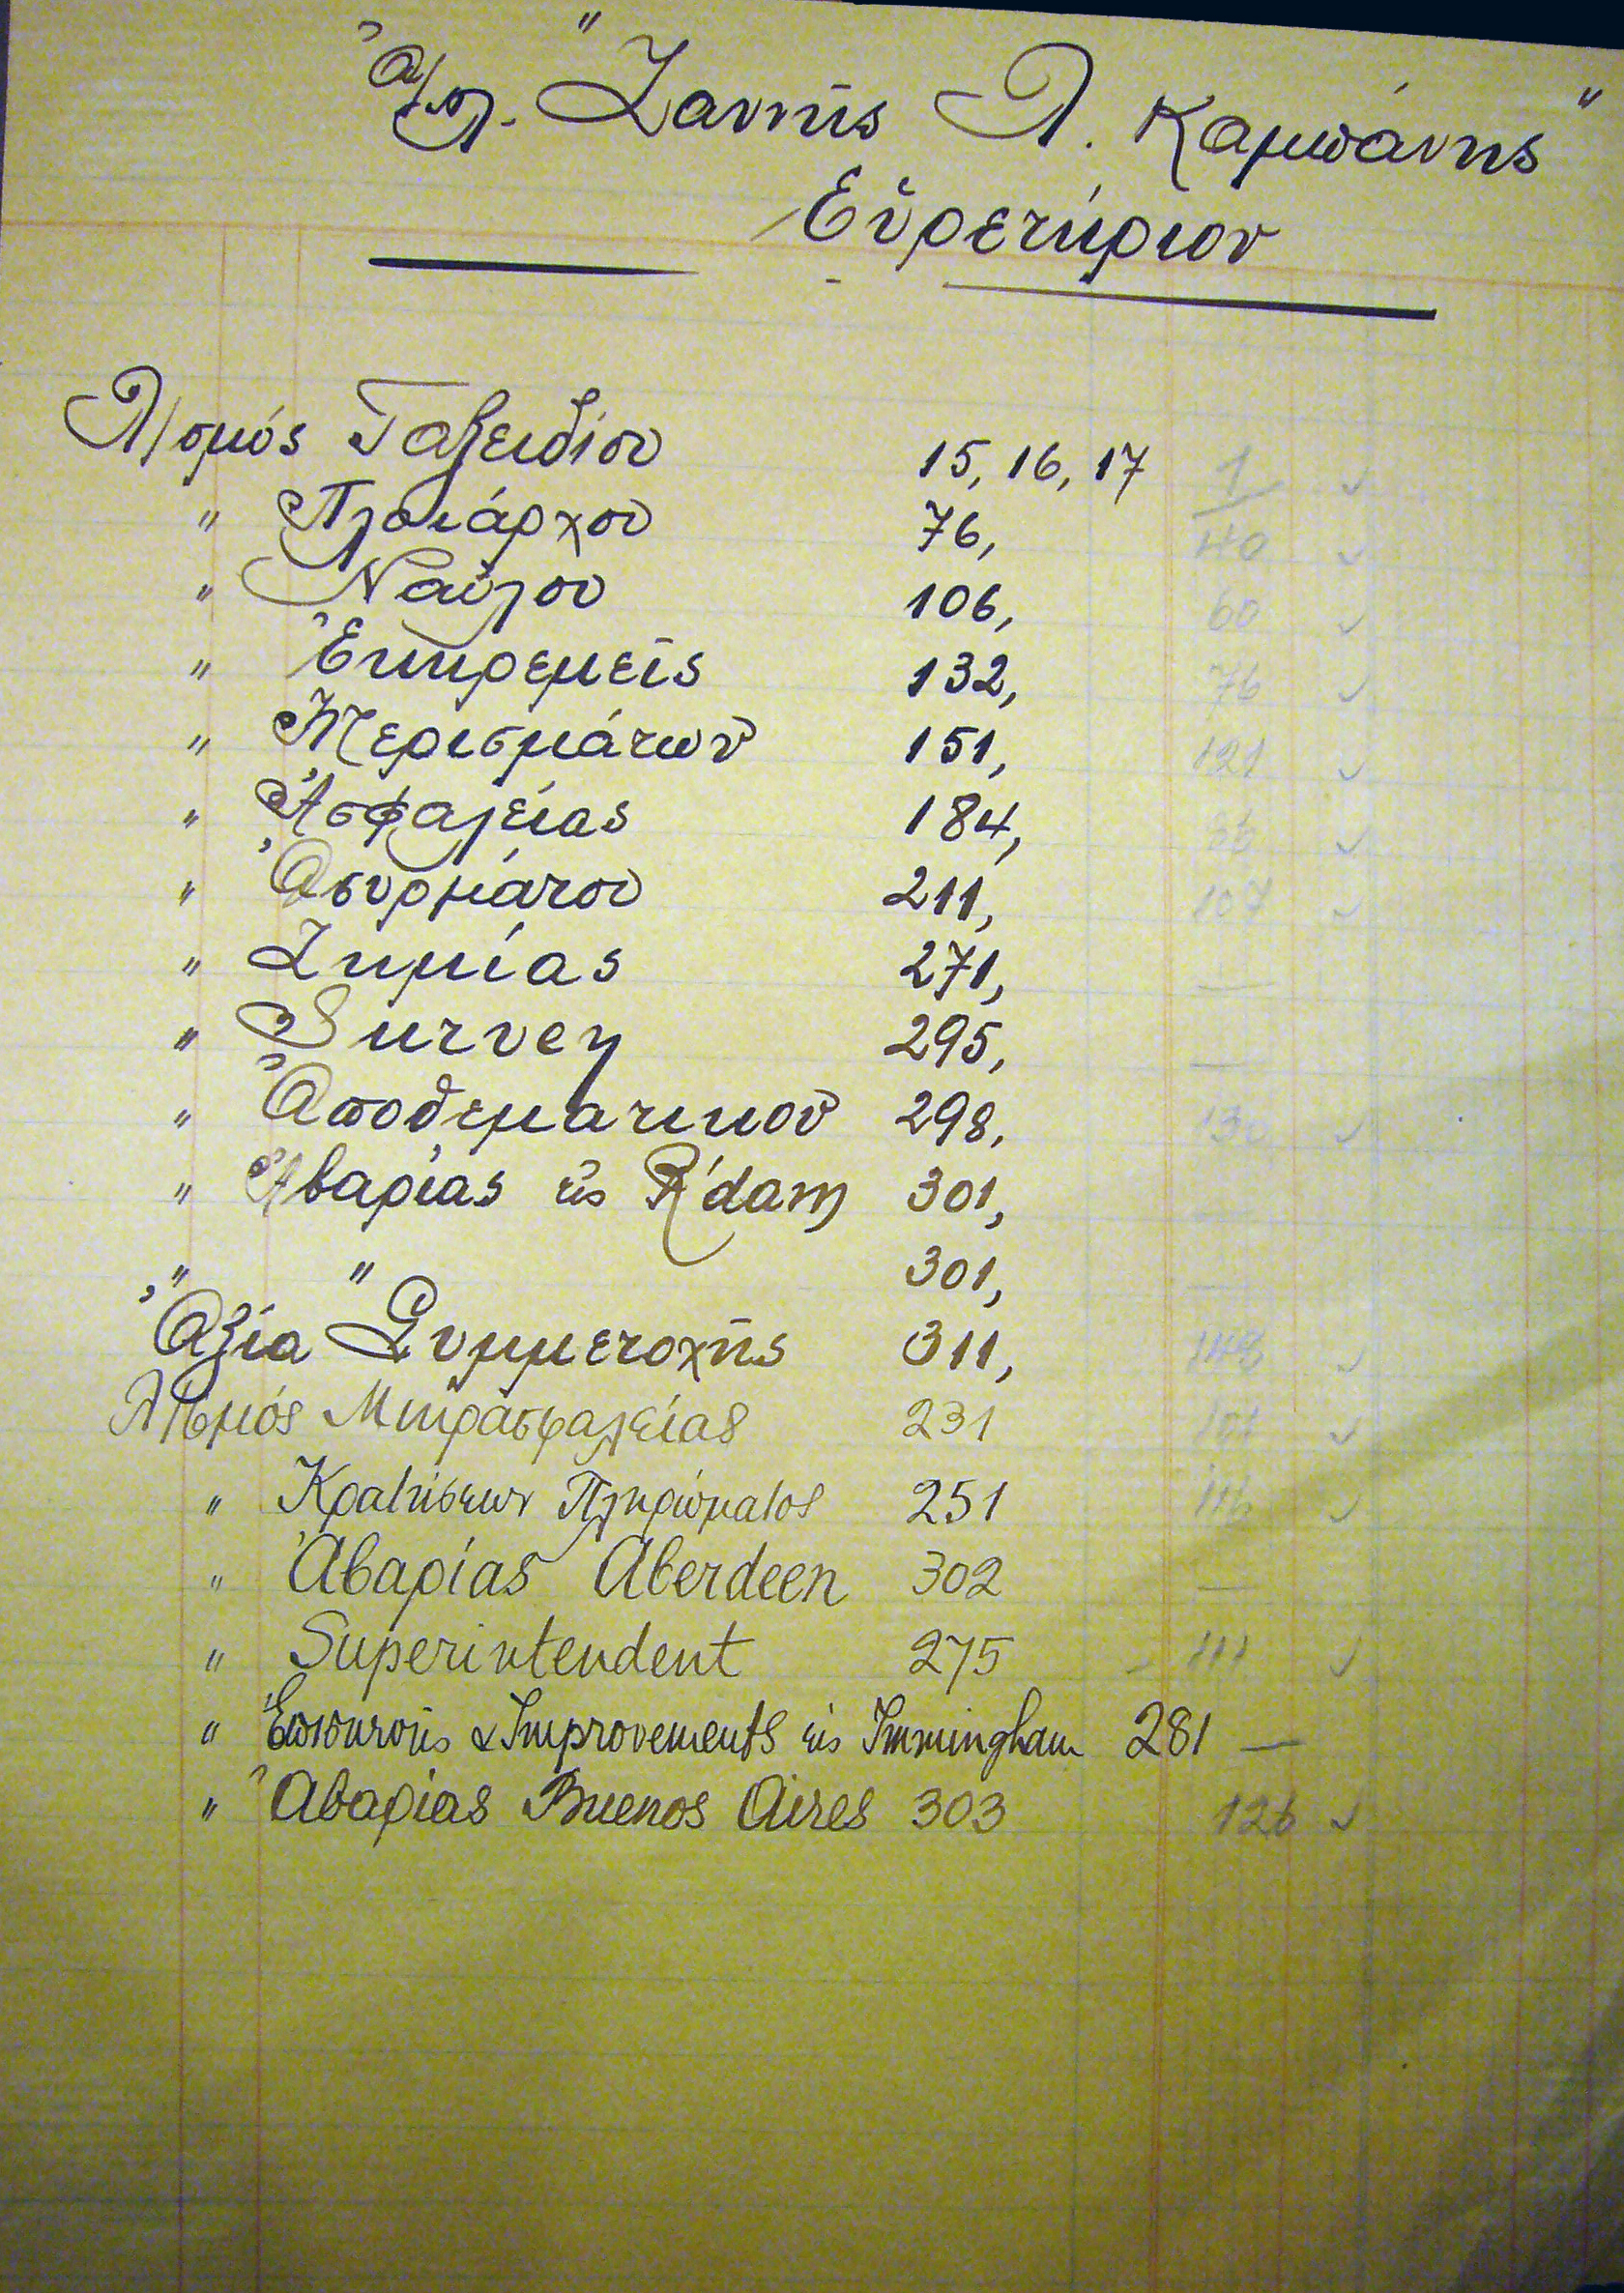 Ἀ/π. "Ζαννῆς Λ. Καμπάνης"
Εὑρετήριον
Λ/σμός Ταξειδίου 15, 16, 17 1 ✓
" Πλοιάρχου 76, 40 ✓
" Ναύλου 106, 60 ✓
" Ἐκκρεμεῖς 132, 76 ✓
" Μερισμάτων 151, 121 ✓
" Ἀσφαλείας 184, ✓
" Ἀσυρμάτου 211, 107 ✓
" Ζημίας 271, —
" Survey 295, —
" Ἀποθεματικοῦ 298, 130 ✓
" Ἀβαρίας εἰς R'dam 301,
" " 301,
Ἀξία Συμμετοχῆς 311, 148 ✓
Λ/σμός Μικρασφαλείας 231 101 ✓
" Κρατήσεων Πληρώματος 251 116 ✓
" Ἀβαρίας Aberdeen 302 —
" Superintendent 275 111 ✓
" Ἐπισκευῆς & Improvements εἰς Immingham 281 —
" Ἀβαρίας Buenos Aires 303 126 ✓